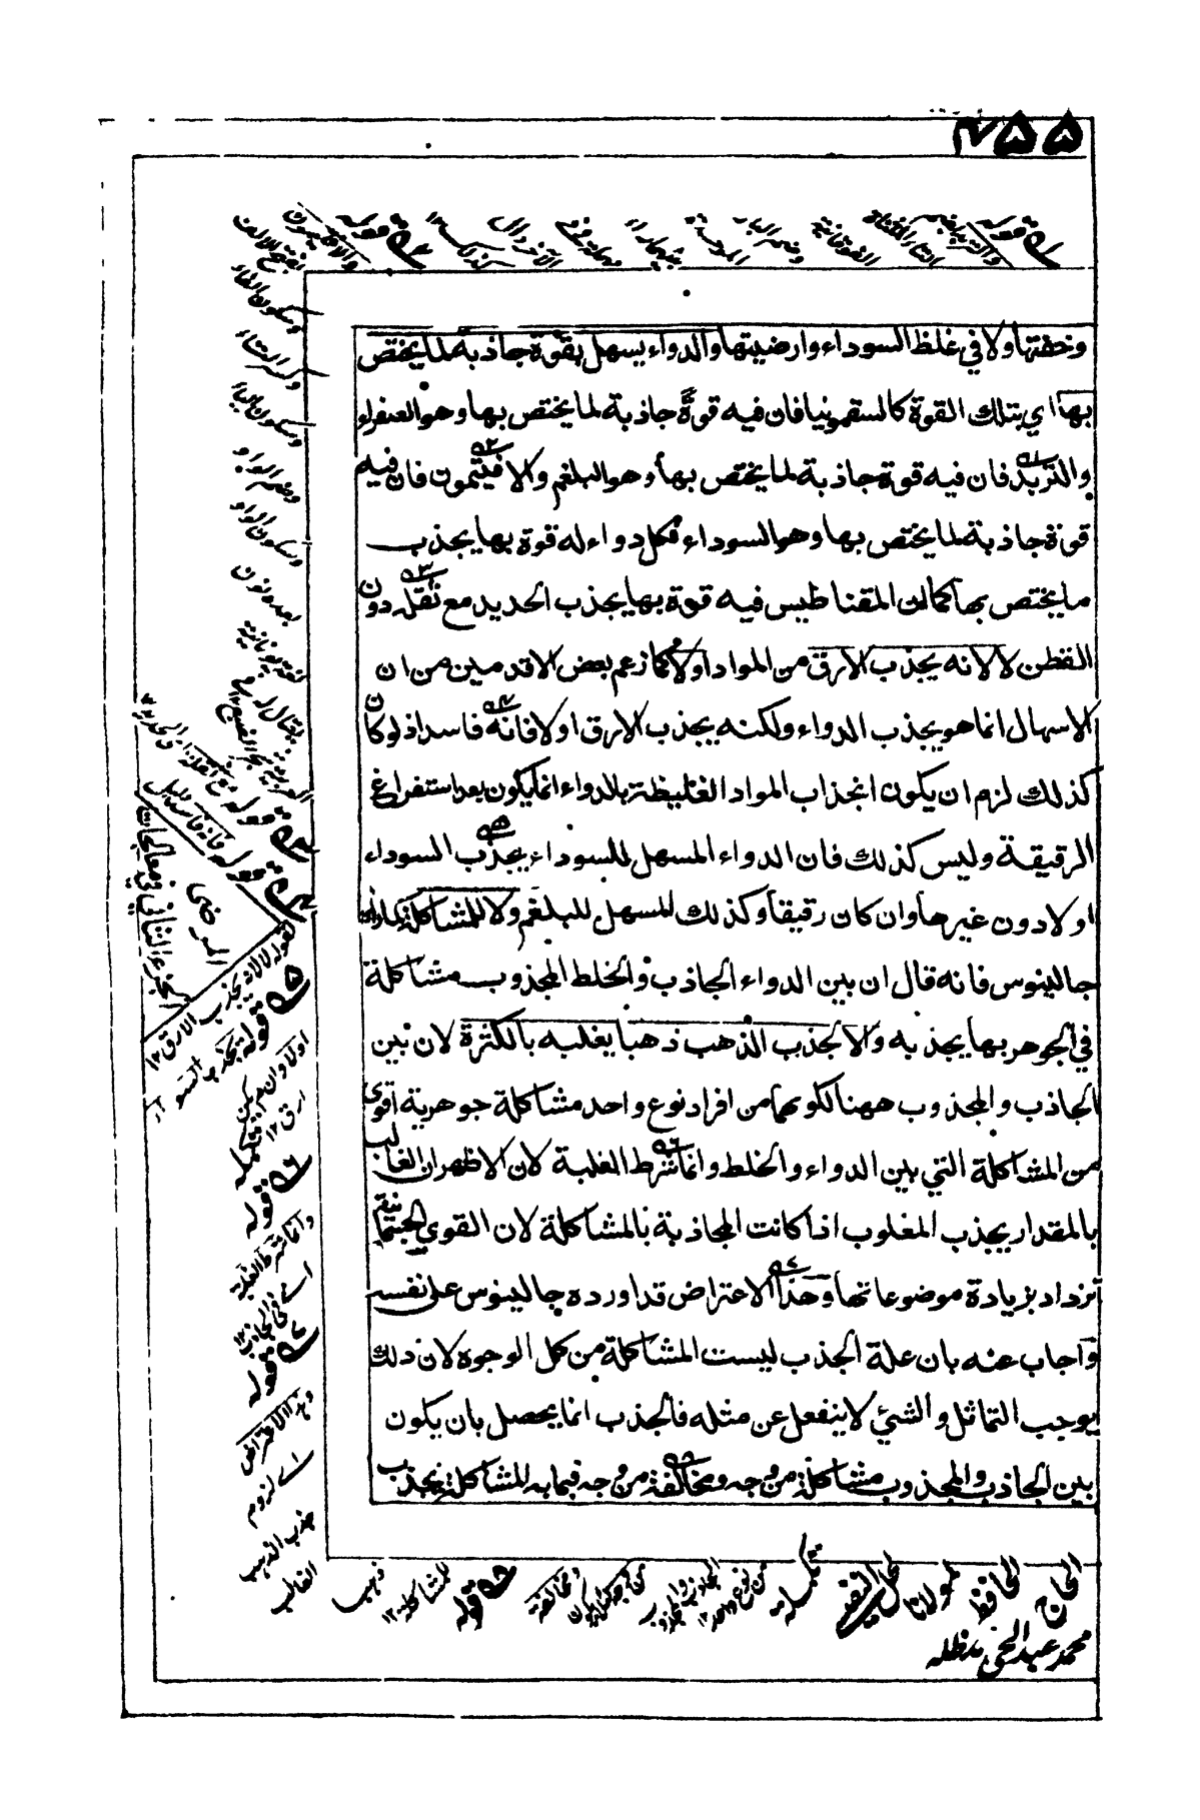 ۴۵۵
وخفتها ولا في غلظ السوداء وارضيتها والدواء يسهل بقوة جاذبة لما يختص
بها اي بتلك القوة كالسقمونيا فان فيه قوة جاذبة لما يختص بها وهو الصفراء
والتربد فان فيه قوة جاذبة لما يختص بها وهو البلغم والافيتمون فان فيه
قوة جاذبة لما يختص بها وهو السوداء فكل دواء له قوة بها يجذب
ما يختص بها كما ان المقناطيس فيه قوة بها يجذب الحديد مع ثقله دون
القطن لا لانه يجذب الارق من المواد اولا كما زعم بعض الاقدمين من ان
الاسهال انما هو يجذب الدواء ولكنه يجذب الارق اولا فانه فاسد اذ لو كان
كذلك لزم ان يكون انجذاب المواد الغليظة بالدواء انما يكون بعد استفراغ
الرقيقة وليس كذلك فان الدواء المسهل للسوداء يجذب السوداء
اولا دون غيرها وان كان رقيقا وكذلك المسهل للبلغم ولا للمشاكلة كما زعم
جالينوس فانه قال ان بين الدواء الجاذب والخلط المجذوب مشاكلة
في الجوهر بها يجذبه والا لجذب الذهب ذهبا يغلبه بالكثرة لان بين
الجاذب والمجذوب ههنا لكونهما من افراد نوع واحد مشاكلة جوهرية اقوى
من المشاكلة التي بين الدواء والخلط وانما شرط الغلبة لان الاظهر ان الغالب
بالمقدار يجذب المغلوب اذا كانت المجاذبة بالمشاكلة لان القوى الجسمانية
تزداد بزيادة موضوعاتها وهذا الاعتراض قد اورده جالينوس على نفسه
واجاب عنه بان علة الجذب ليست المشاكلة من كل الوجوه لان ذلك
يوجب التماثل والشئ لا ينفعل عن مثله فالجذب انما يحصل بان يكون
بين الجاذب والمجذوب مشاكلة من وجه ومخالفة من وجه فبما به المشاكلة يجذب
قوله والتربد
التاء المثناة
الفوقانية
وضم الباء
الموحدة
قوله
والافتيمون
بفتح الالف
وسكون الفاء
وكسر التاء
وسكون الياء
وضم الواو
وسكون الواو
بعده نون
لغة يونانية
قوله فانه فاسد
لقوله لا لانه يجذب الارق ۱۲
قوله يجذب السوداء
اولا وان
ارق ۱۲
قوله
وانما شرط الغلبة
قوله
وهذا الاعتراض
اے لزوم
جذب الذهب
الغالب
قوله
ومخالفة
للمشاكلة ۱۲
الحاج
الحافظ
مولانا
محمد عبد الحي مد ظله